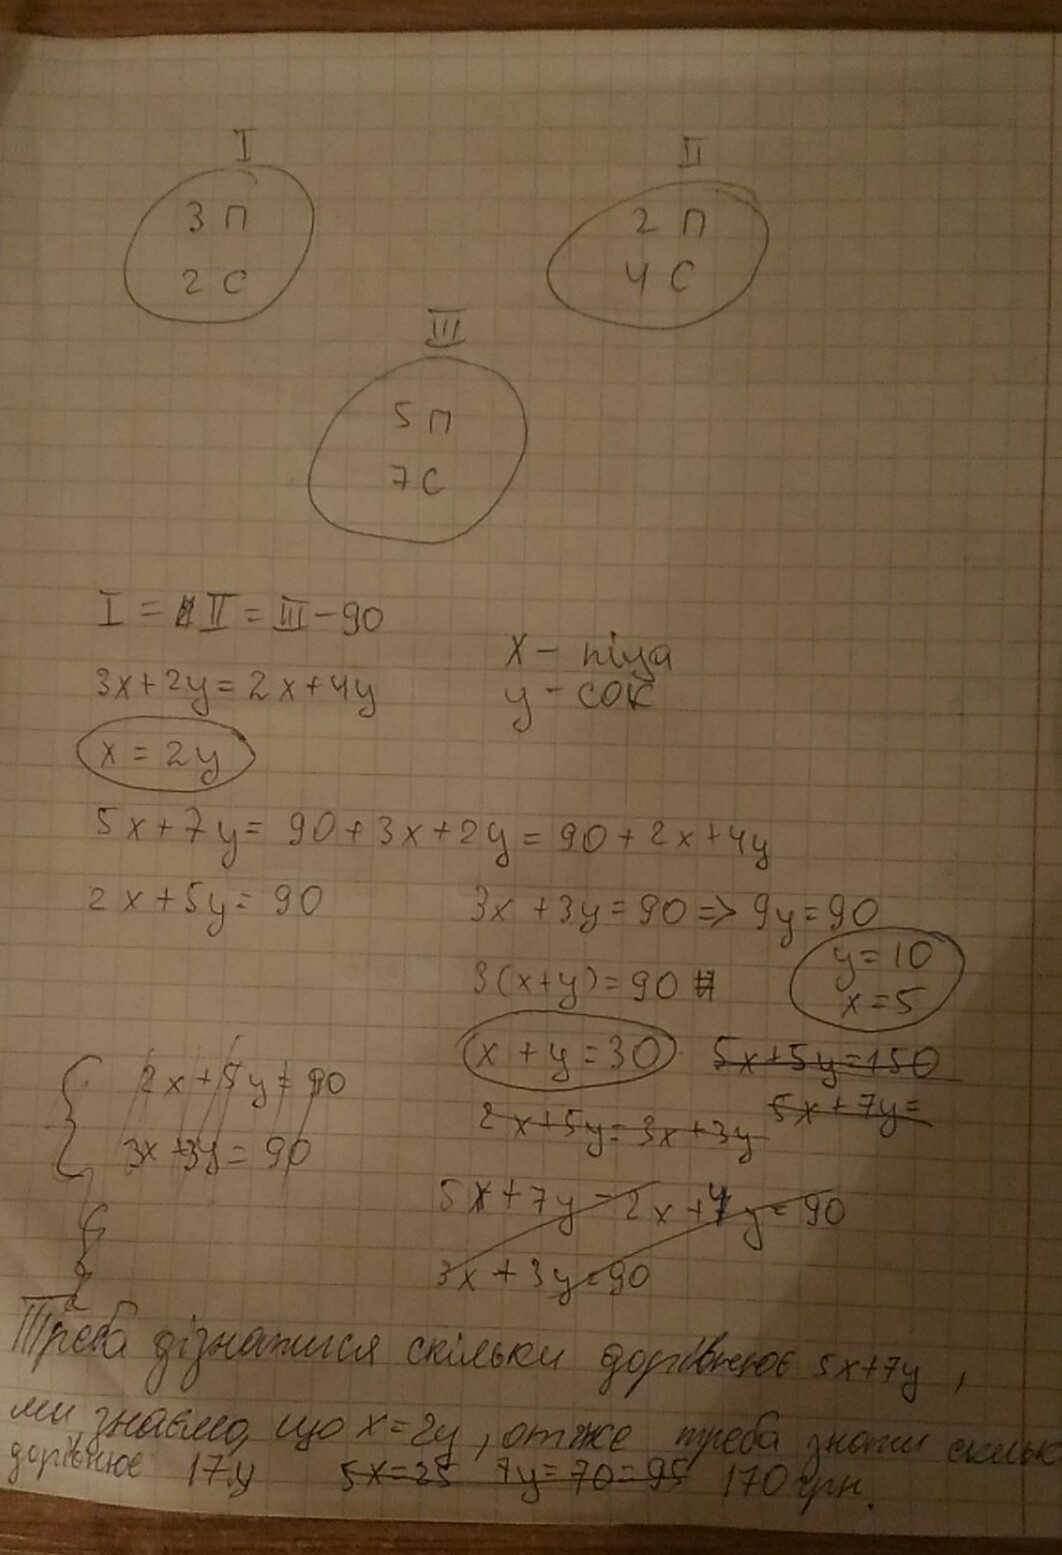 I
II
3 П
2 П
2 С
4 С
III
5 П
7 С
I = II = III - 90
x - піца
3x+2y=2x+4y
y - сок
x = 2y
5x+7y= 90+3x+2y=90+2x+4y
2x+5y= 90
3x+3y=90=>9y=90
y=10
3(x+y)=90
x=5
x+y=30
5x+5y=150
2x+5y=90
5x+7y=
3x+3y=90
2x+5y=3x+3y
5x+7y-2x+4y=90
3x+3y=90
Треба дізнатися скільки дорівнює 5x+7y,
ми знаємо, що x=2y, отже треба знати скільк
дорівнює 17y 5x=25 7y=70=95 170 грн.